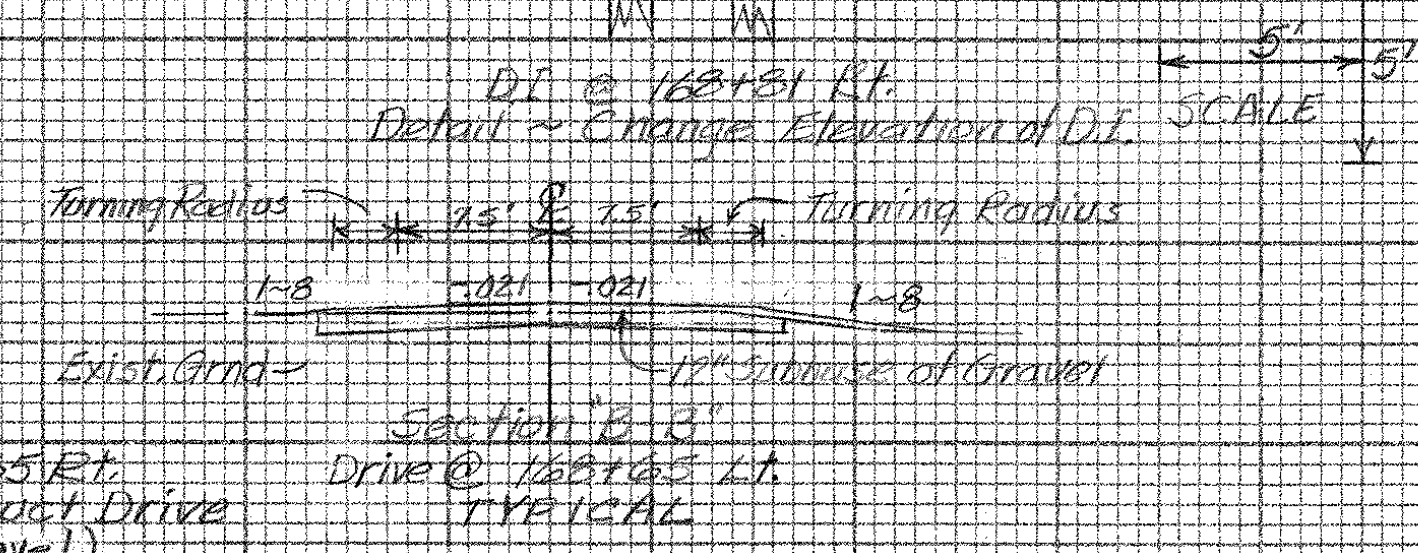 D.I. @ 168+81 Rt.
Detail ~ Change Elevation of D.I.
5'
5'
SCALE
Turning Radius
7.5'
℄
7.5'
Turning Radius
1~8
-.021
-.021
1~8
Exist. Grnd
12" Subbase of Gravel
Section "B-B"
Drive @ 168+65 Lt.
TYPICAL
5 Rt.
Drive